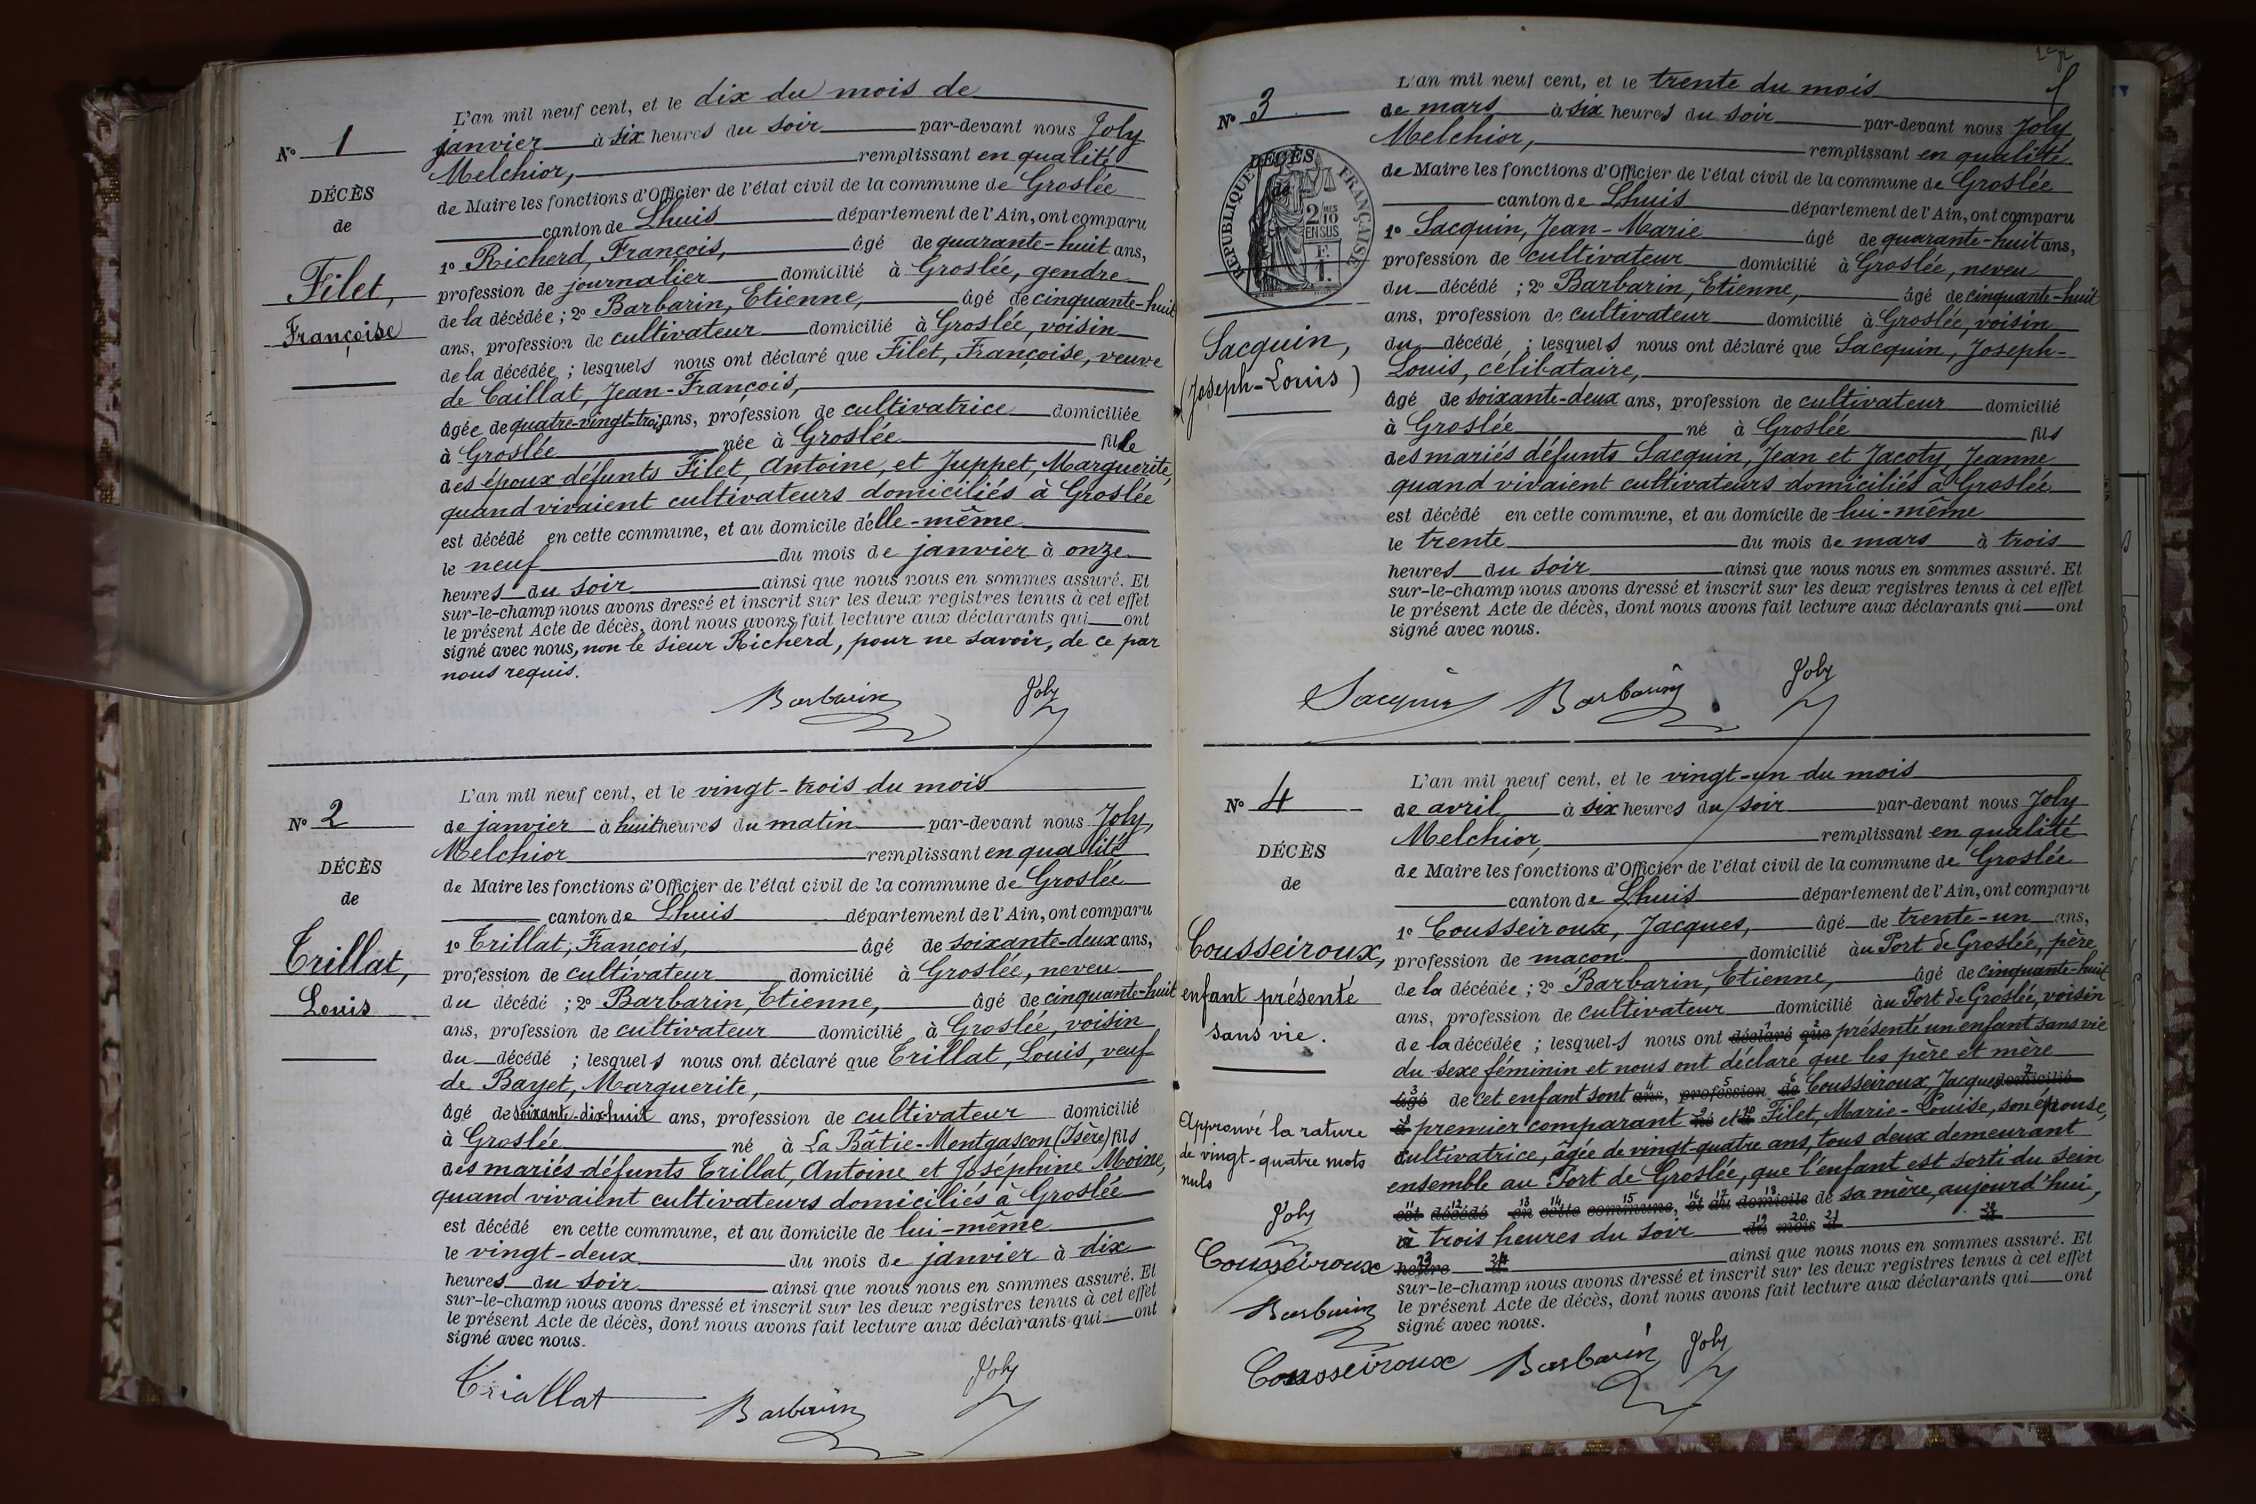 L'an mil neuf cent, et le dix du mois de
janvier à six heures du soir par-devant nous Joly
Melchior, remplissant en qualité
de Maire les fonctions d'Officier de l'état civil de la commune de Groslée
canton de Lhuis département de l'Ain, ont comparu
1º Richerd, François, âgé de quarante-huit ans,
profession de journalier domicilié à Groslée, gendre
de la décédée ; 2º Barbarin, Etienne, âgé de cinquante-huit
ans, profession de cultivateur domicilié à Groslée, voisin
de la décédée ; lesquels nous ont déclaré que Filet, Françoise, veuve
de Caillat, Jean-François,
âgée de quatre-vingt-trois ans, profession de cultivatrice domiciliée
à Groslée née à Groslée fille
des époux défunts Filet, Antoine, et Juppet, Marguerite,
quand vivaient cultivateurs domiciliés à Groslée
est décédé en cette commune, et au domicile d'elle-même
le neuf du mois de janvier à onze
heures du soir ainsi que nous nous en sommes assuré. Et
sur-le-champ nous avons dressé et inscrit sur les deux registres tenus à cet effet
le présent Acte de décès, dont nous avons fait lecture aux déclarants qui ont
signé avec nous, non le sieur Richerd, pour ne savoir, de ce par
nous requis.
Barbarin Joly
Nº 1
DÉCÈS
de
Filet,
Françoise
Nº 2
DÉCÈS
de
Trillat,
Louis
L'an mil neuf cent, et le vingt-trois du mois
de janvier à huit heures du matin par-devant nous Joly,
Melchior remplissant en qualité
de Maire les fonctions d'Officier de l'état civil de la commune de Groslée
canton de Lhuis département de l'Ain, ont comparu
1º Trillat, François, âgé de soixante-deux ans,
profession de cultivateur domicilié à Groslée, neveu
du décédé ; 2º Barbarin, Etienne, âgé de cinquante-huit
ans, profession de cultivateur domicilié à Groslée, voisin
du décédé ; lesquels nous ont déclaré que Trillat, Louis, veuf
de Bayet, Marguerite,
âgé de soixante-dix-huit ans, profession de cultivateur domicilié
à Groslée né à La Bâtie-Montgascon (Isère) fils
des mariés défunts Trillat, Antoine et Joséphine Moine,
quand vivaient cultivateurs domiciliés à Groslée
est décédé en cette commune, et au domicile de lui-même
le vingt-deux du mois de janvier à dix
heures du soir ainsi que nous nous en sommes assuré. Et
sur-le-champ nous avons dressé et inscrit sur les deux registres tenus à cet effet
le présent Acte de décès, dont nous avons fait lecture aux déclarants qui ont
signé avec nous.
Triallat Barbarin Joly
Nº 3
DÉCÈS
de
RÉPUBLIQUE FRANÇAISE
2/10 EN SUS
F.
1.
Sacquin,
(Joseph-Louis)
L'an mil neuf cent, et le trente du mois
de mars à six heures du soir par-devant nous Joly
Melchior, remplissant en qualité
de Maire les fonctions d'Officier de l'état civil de la commune de Groslée
canton de Lhuis département de l'Ain, ont comparu
1º Sacquin, Jean-Marie âgé de quarante-huit ans,
profession de cultivateur domicilié à Groslée, neveu
du décédé ; 2º Barbarin, Etienne, âgé de cinquante-huit
ans, profession de cultivateur domicilié à Groslée, voisin
du décédé ; lesquels nous ont déclaré que Sacquin, Joseph-
Louis, célibataire,
âgé de soixante-deux ans, profession de cultivateur domicilié
à Groslée né à Groslée fils
des mariés défunts Sacquin, Jean et Jacoty Jeanne
quand vivaient cultivateurs domiciliés à Groslée
est décédé en cette commune, et au domicile de lui-même
le trente du mois de mars à trois
heures du soir ainsi que nous nous en sommes assuré. Et
sur-le-champ nous avons dressé et inscrit sur les deux registres tenus à cet effet
le présent Acte de décès, dont nous avons fait lecture aux déclarants qui ont
signé avec nous.
Sacquin Barbarin Joly
Nº 4
DÉCÈS
de
Cousseiroux,
enfant présenté
sans vie.
Approuvé la rature
de vingt-quatre mots
nuls
Joly
Cousseiroux
Barbarin
L'an mil neuf cent, et le vingt-un du mois
de avril à six heures du soir par-devant nous Joly
Melchior, remplissant en qualité
de Maire les fonctions d'Officier de l'état civil de la commune de Groslée
canton de Lhuis département de l'Ain, ont comparu
1º Cousseiroux, Jacques, âgé de trente-un ans,
profession de maçon domicilié au Port de Groslée, père
de la décédée ; 2º Barbarin, Etienne, âgé de cinquante-huit
ans, profession de cultivateur domicilié au Port de Groslée, voisin
de la décédée ; lesquels nous ont déclaré que présenté un enfant sans vie
du sexe féminin et nous ont déclaré que les père et mère
âgé de cet enfant sont ans, profession de Cousseiroux, Jacques domicilié
à premier comparant né et à Filet, Marie-Louise, son épouse,
cultivatrice, âgée de vingt-quatre ans, tous deux demeurant
ensemble au Port de Groslée, que l'enfant est sorti du sein
est décédé en cette commune, et au domicile de sa mère, aujourd'hui,
à trois heures du soir du mois d à
heure d ainsi que nous nous en sommes assuré. Et
sur-le-champ nous avons dressé et inscrit sur les deux registres tenus à cet effet
le présent Acte de décès, dont nous avons fait lecture aux déclarants qui ont
signé avec nous.
Cousseiroux Barbarin Joly